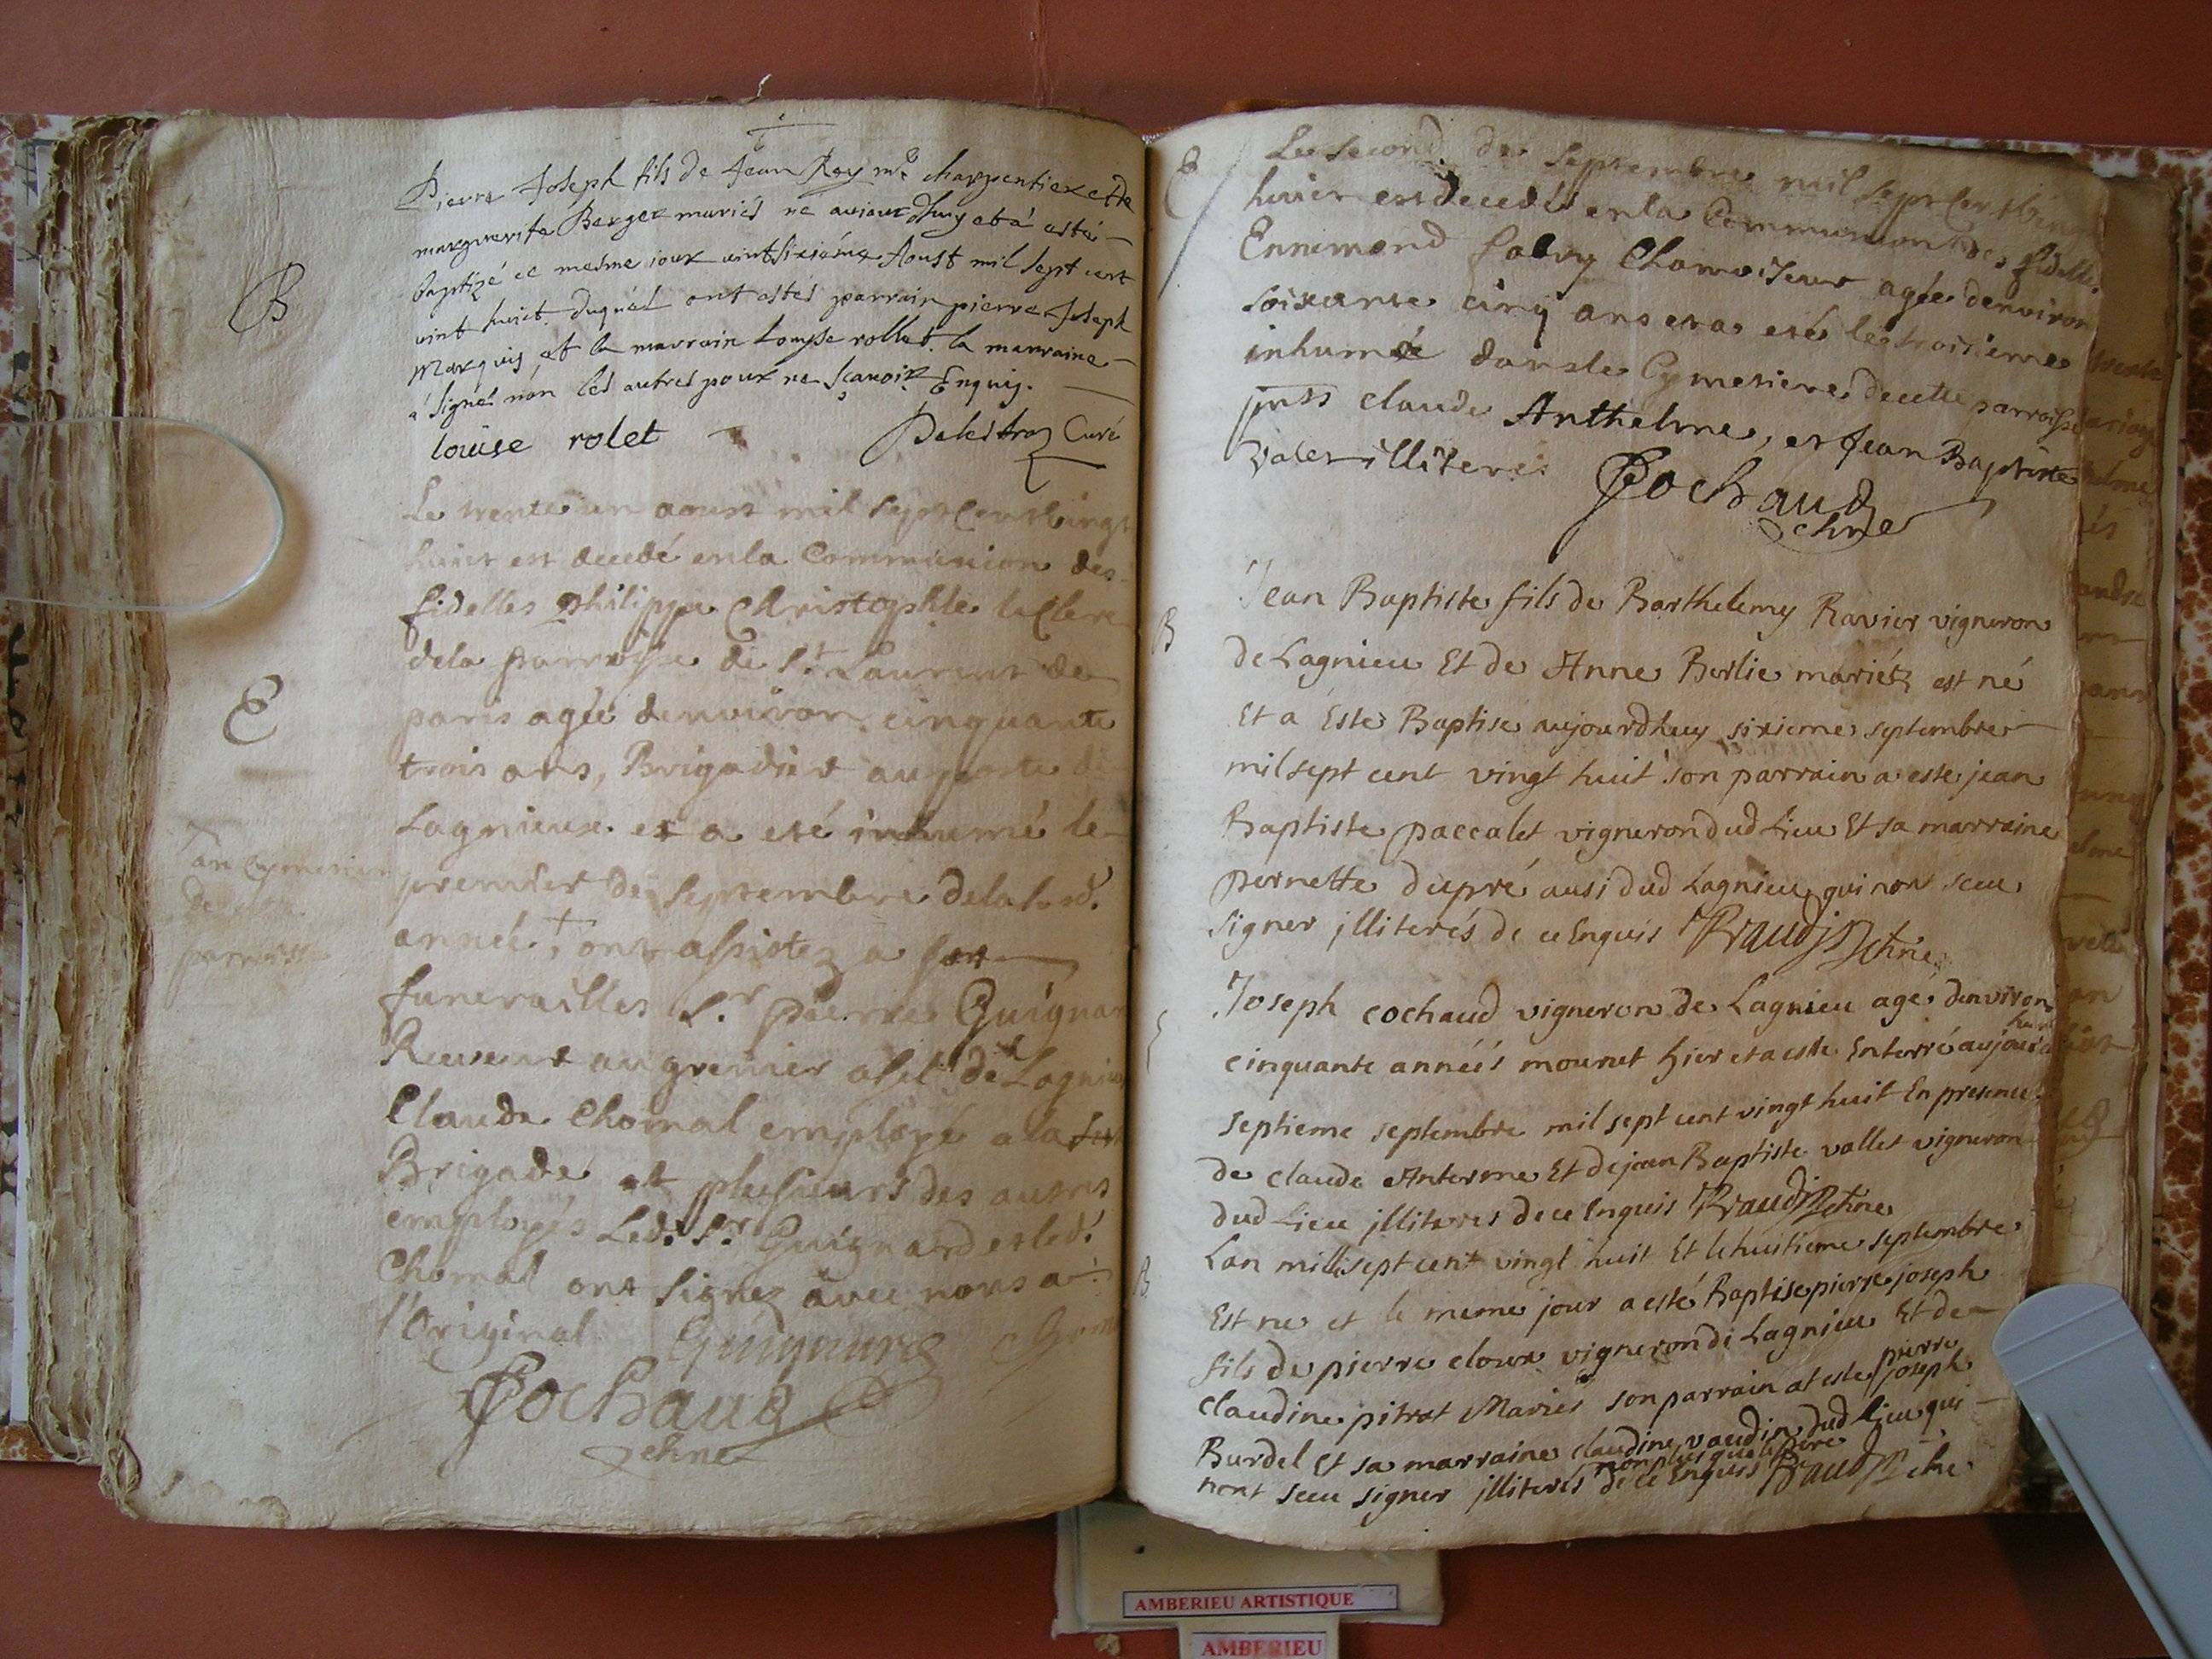 Pierre Joseph fils de Jean Roy me charpentier et de
marguerite Berger mariés né aujourdhuy et à esté
baptizé ce mesme jour vintsixiéme Aoust mil sept cent
vint huict. duquel ont estes parrain pierre Joseph
Marquis et la marrain Louyse rollet. la marraine
a' signé non les autres pour ne sçavoir Enquis.
B
louise rolet
Delestraz Curé
Le trente un aoust mil sept Cent vingt
huict est decedé en la Communion des
fidelles philippe Christophle le Clerc
de la parroisse de St. Laurent de
E
paris agée denviron cinquante
trois ans, Brigadier au poste de
Lagnieux. et a eté inhumé le
premier de Septembre de la susd.
au Cymetiere
de cette
parroisse
année, + ont assistez a ses
funerailles Sr. pierre Guignar
Receveur au grenier a sel de Lagnieu
Claude Chomal employé a la susd
Brigade et plusieurs des autres
employés Led. Sr. Guignard et led.
Chomal ont signez avec nous a
l'Original Guignard Chom
Cochaud
E
Le second de Septembre mil sept Cent vin
huict est decedé en la Communion des fidelle.
Ennemond Chamoiseur agée denviron
soixante cinq ans et a eté le troisieme
inhumée dans le Cymetiere de cette parroisse
pnts claude Anthelme, et Jean Baptiste
valet illiteré
Cochaud
B
Jean Baptiste fils de Barthelemy Ravier vigneron
de Lagnieu Et de Anne Berlie mariéz est né
Et a Esté Baptisé aujourdhuy sixieme septembre
mil sept cent vingt huit son parrain a esté jean
Baptiste paccalet vigneron dud Lieu Et sa marraine
pernette dupré ausi dud Lagnieu qui non sceu
signer illiterés de ce Enquis
Joseph cochaud vigneron de Lagnieu age denviron
cinquante années mourut hier et a esté Enterré aujourd
huit
septieme septembre mil sept cent vingt huit En presence
de claude Anterme Et de jean Baptiste vallet vigneron
dud Lieu illiteres de ce Enquis
Lan mil sept cent vingt huit Et le huitieme septembre
B
Est ne et le meme jour a esté Baptise pierre joseph
fils de pierre cloux vigneron de Lagnieu Et de
claudine pitrat Mariés son parrain at este pierre joseph
Burdel Et sa marraine claudine vaudin dud lieu qui
non plus que le pere
nont sceu signer illiterés de ce Enquis
AMBERIEU ARTISTIQUE
AMBERIEU